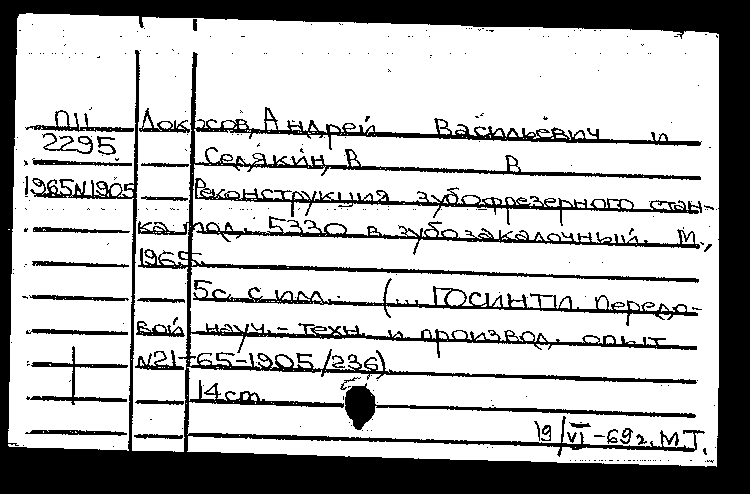 ПII Локасов, Андрей Васильевич и
2295 Седякин, В В
1965N1905 Реконструкция зубофрезерного стан-
ка мод. 5330 в зубозакалочный. М.,
1965.
5с. с илл. (... ГОСИНТИ. Передо-
вой науч.-техн. и производ. опыт
N21-65-1905/236)
14cm
19/VI-69г. М.Т.